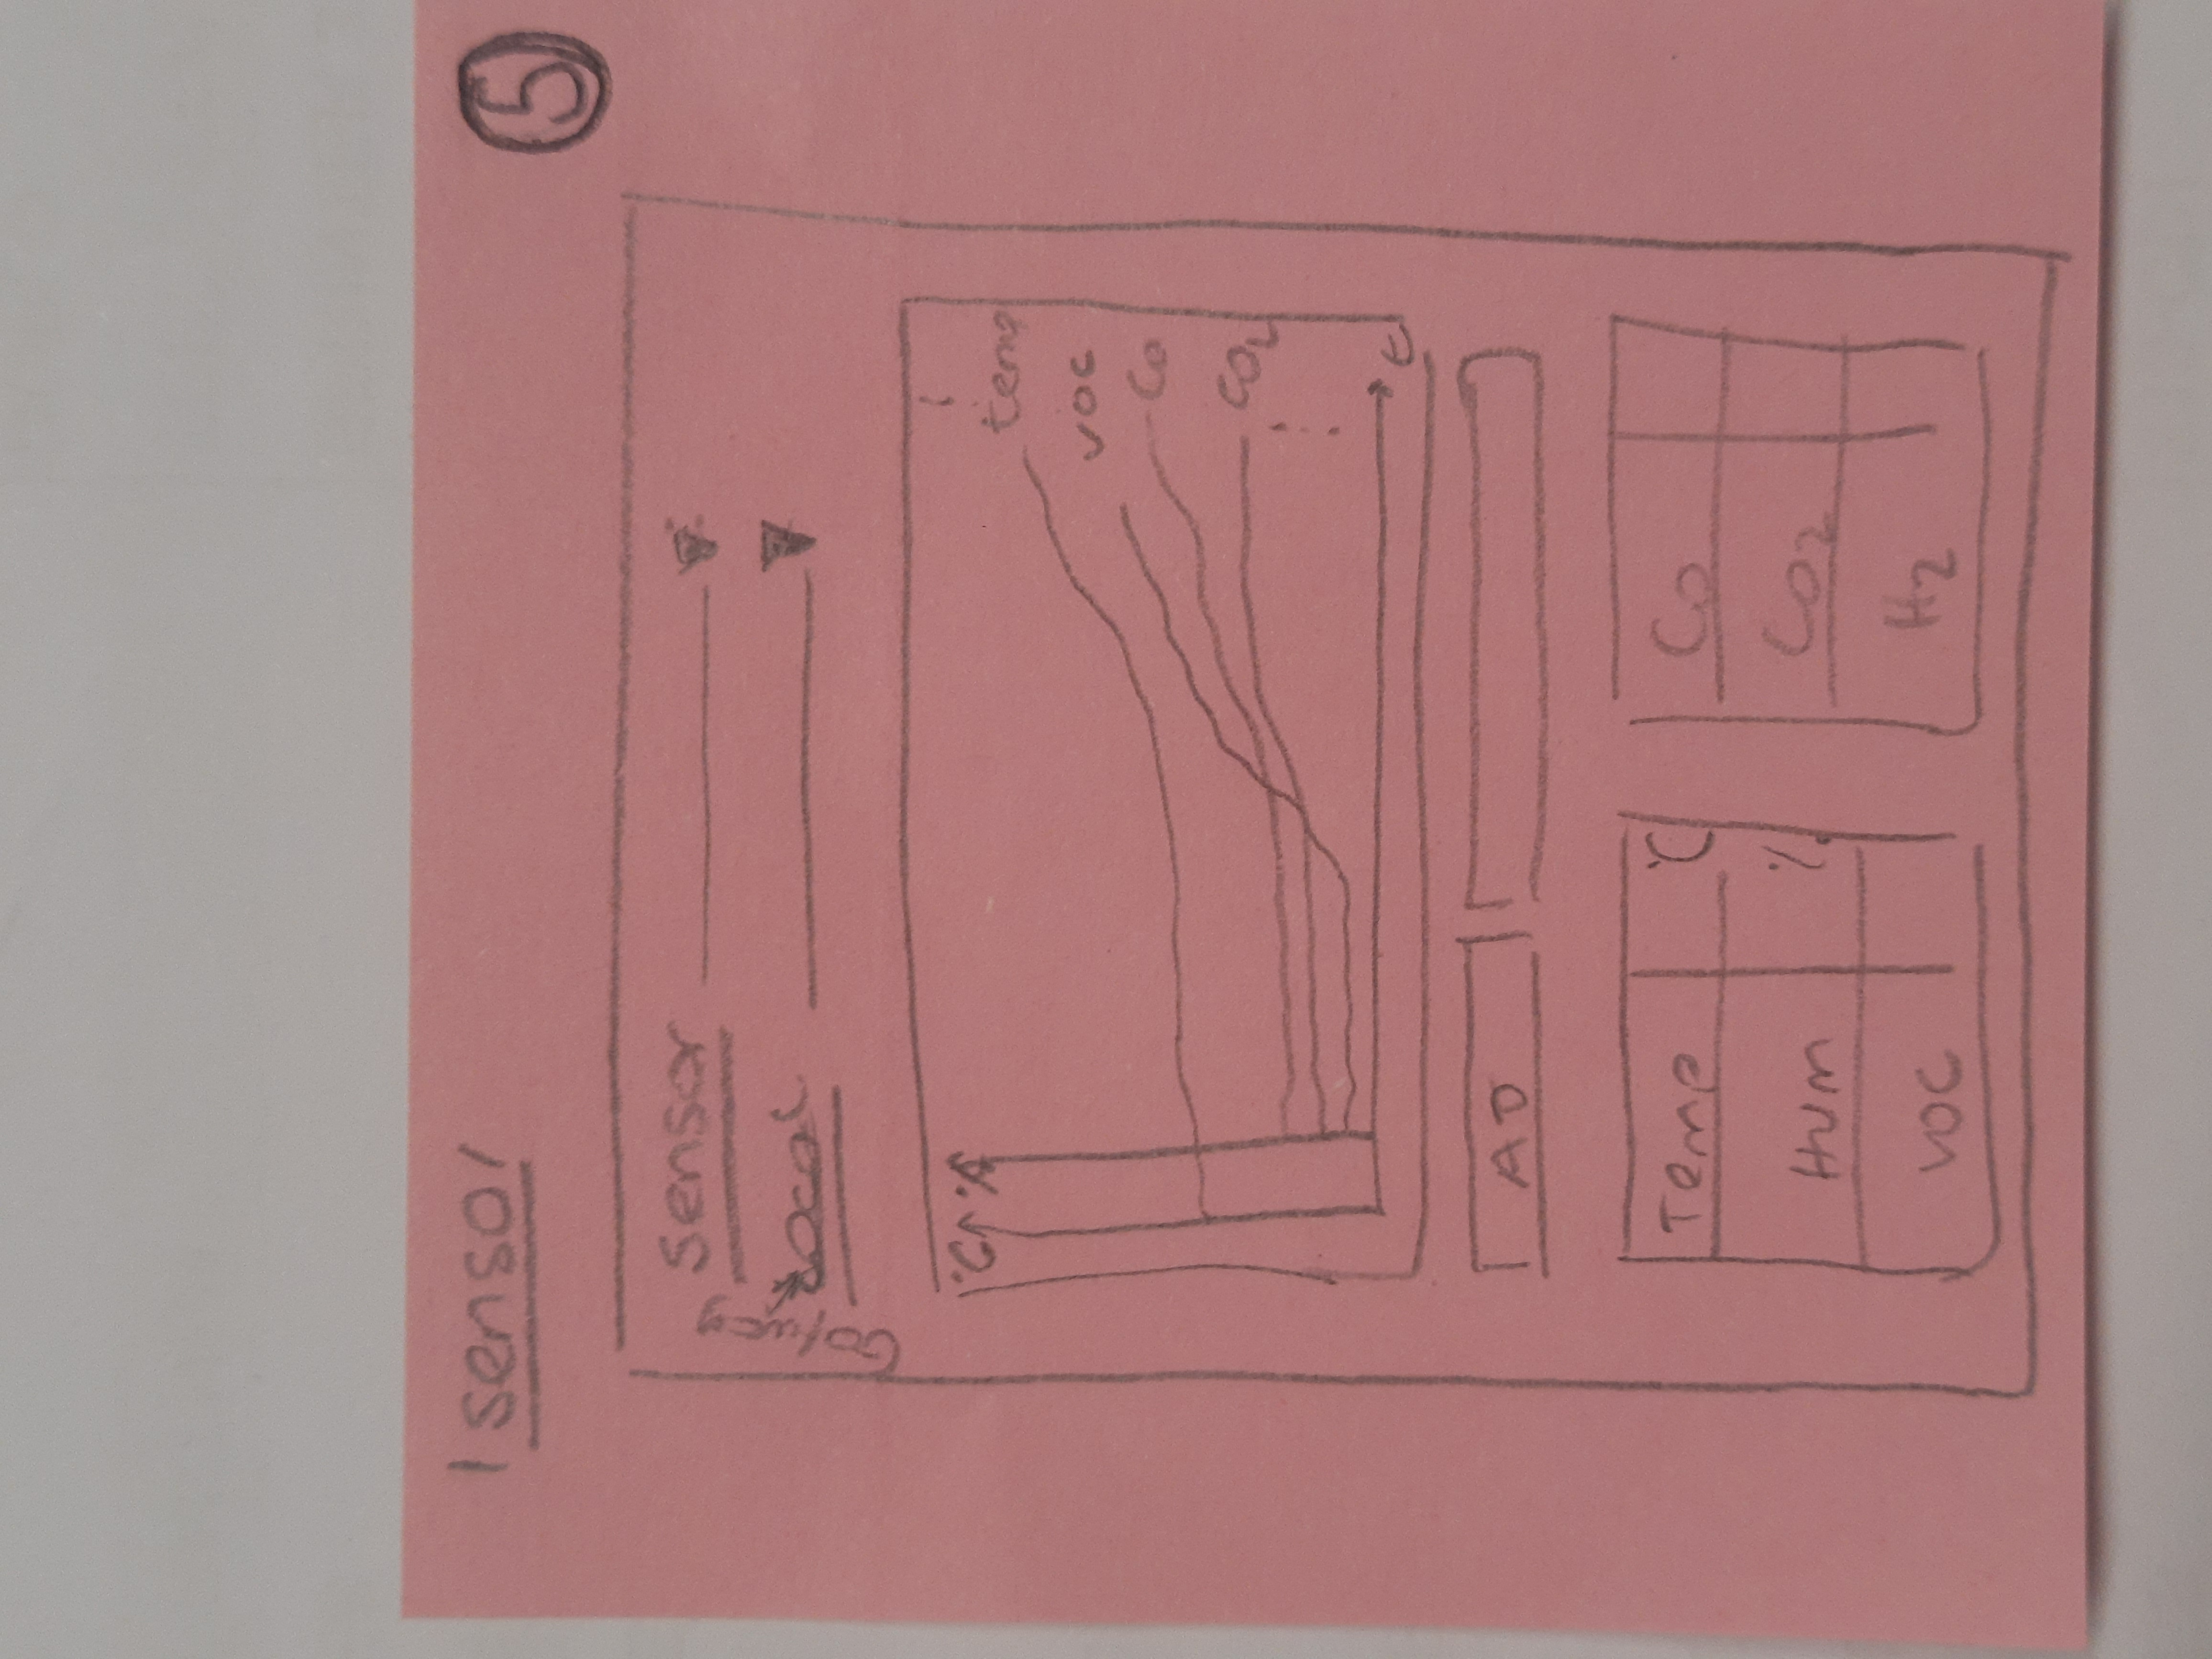 1 sensor
5
sensor
Local
°C %
temp
VOC
CO
CO2
t
AD
Temp °C
Hum %
VOC
CO
CO2
H2